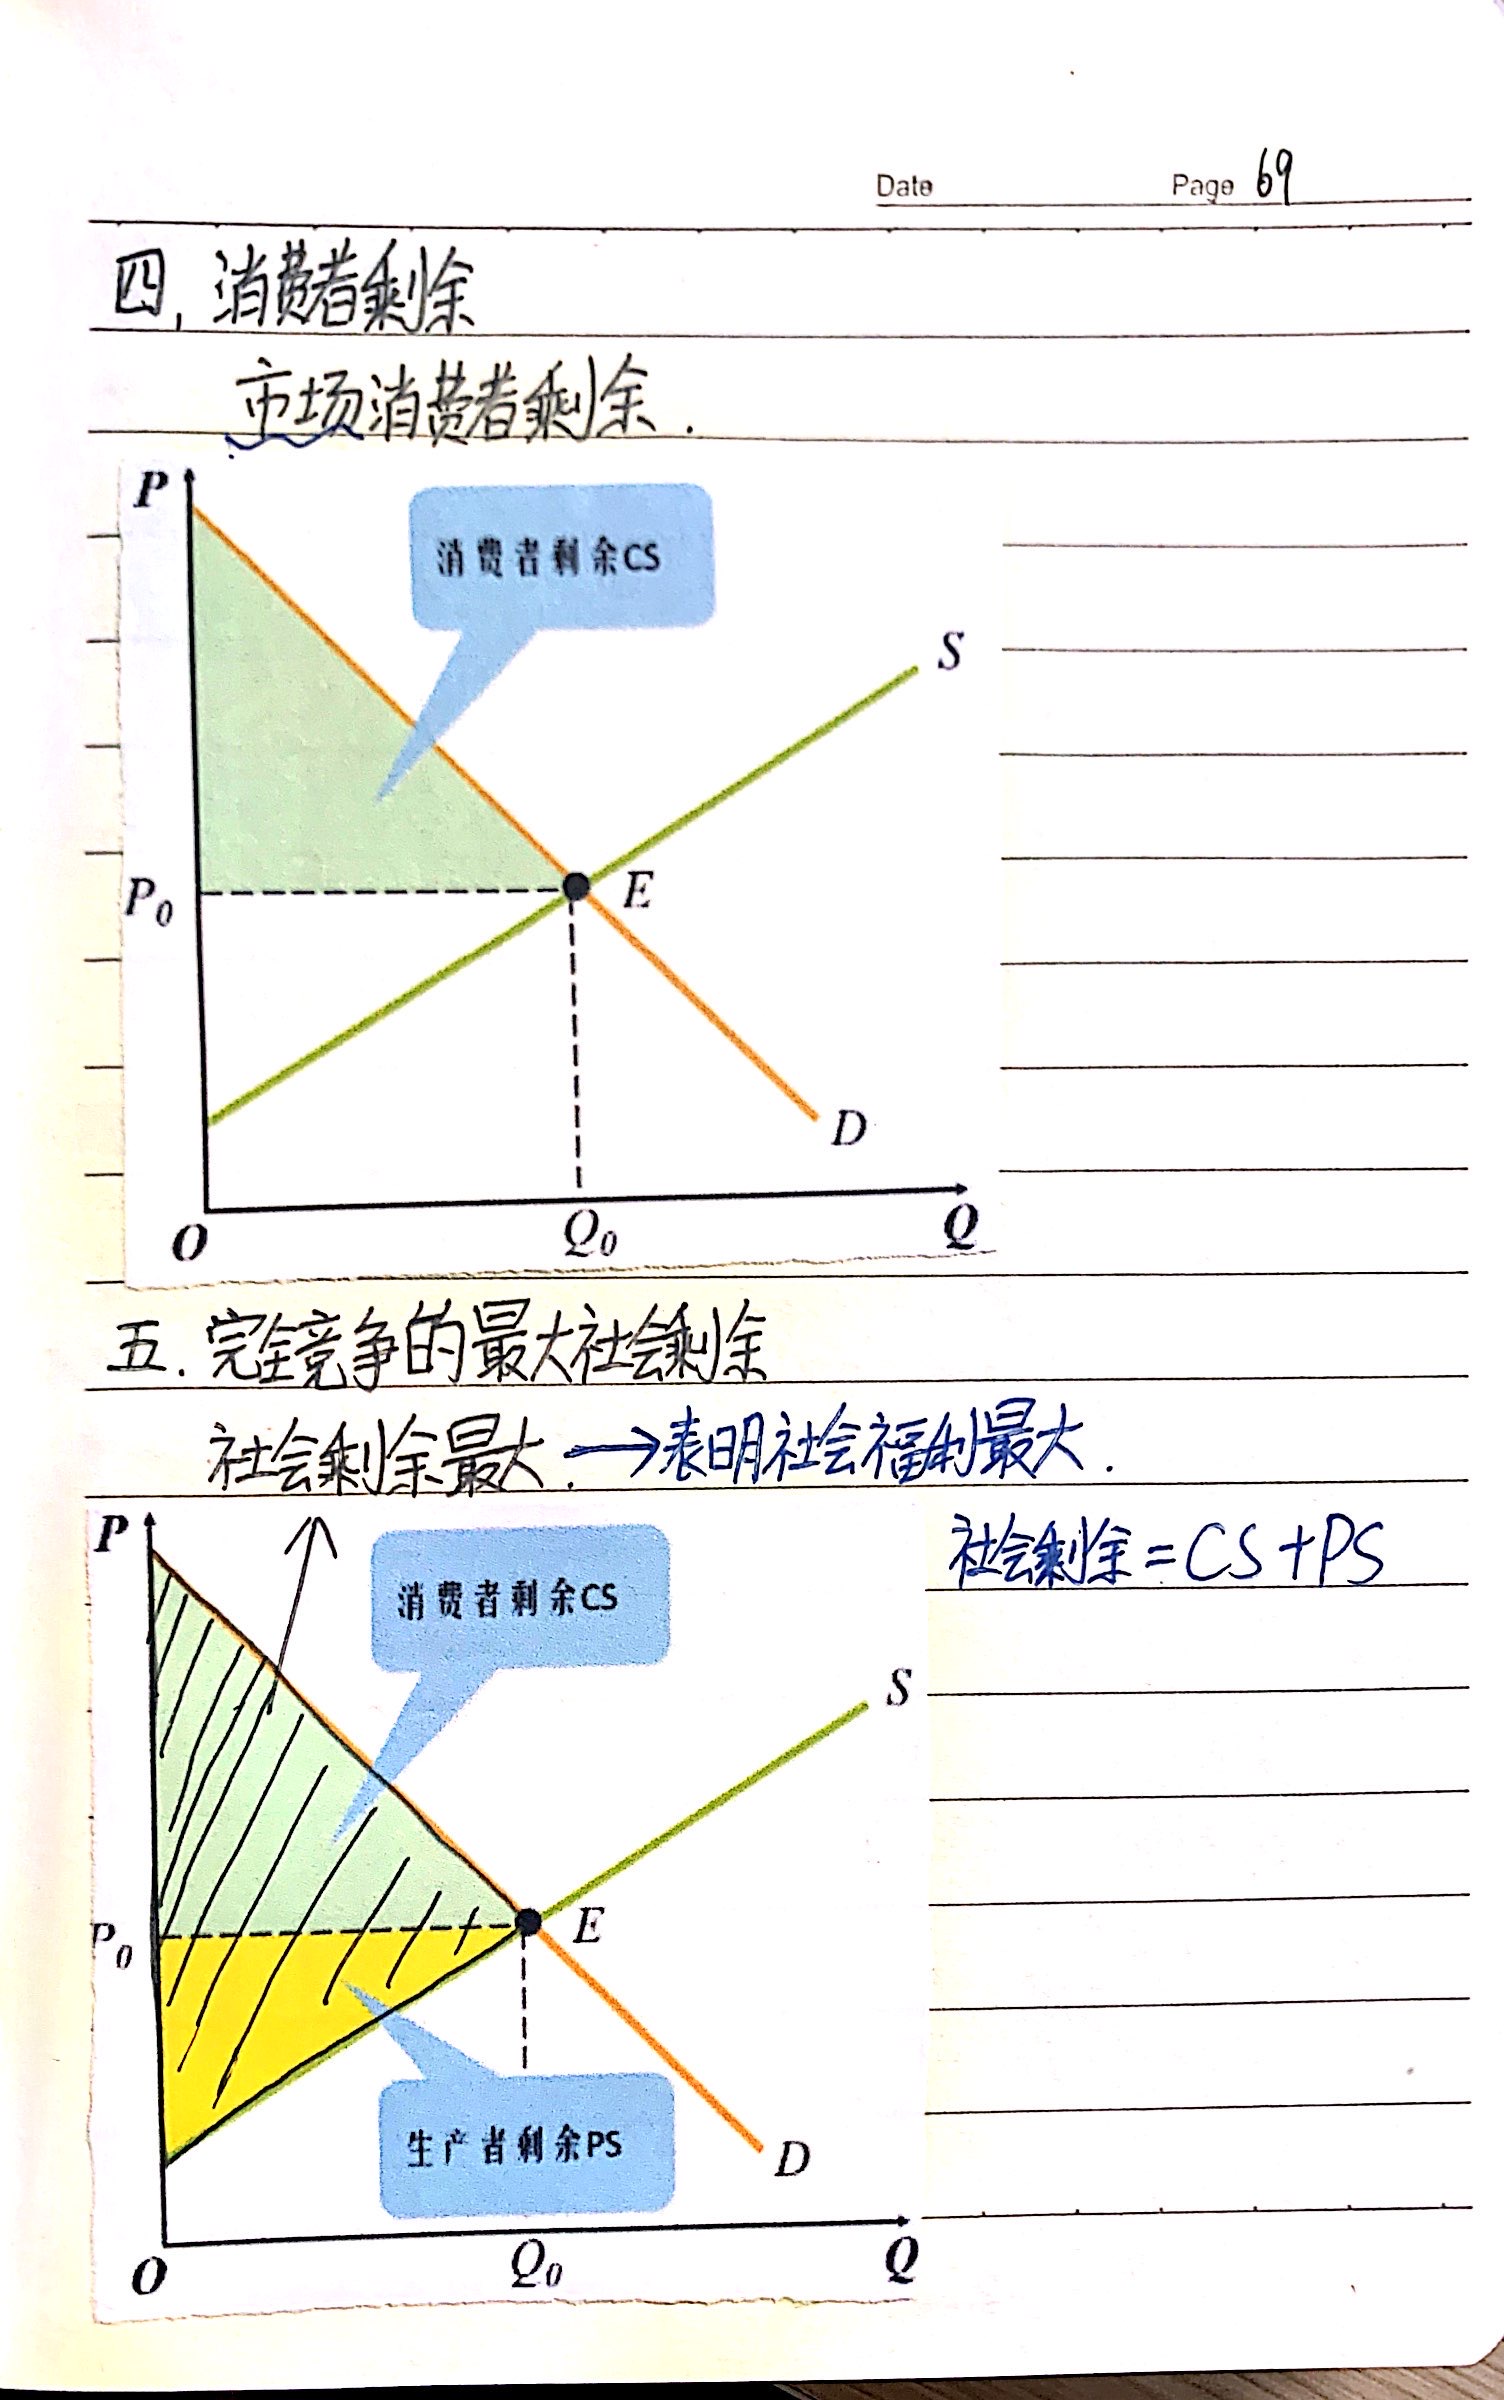 Date Page 69
四, 消费者剩余
市场消费者剩余.
P
消费者剩余CS
S
P0 E
D
O Q0 Q
五. 完全竞争的最大社会剩余
社会剩余最大. →表明社会福利最大.
P 社会剩余=CS+PS
消费者剩余CS
S
P0 E
生产者剩余PS
D
O Q0 Q